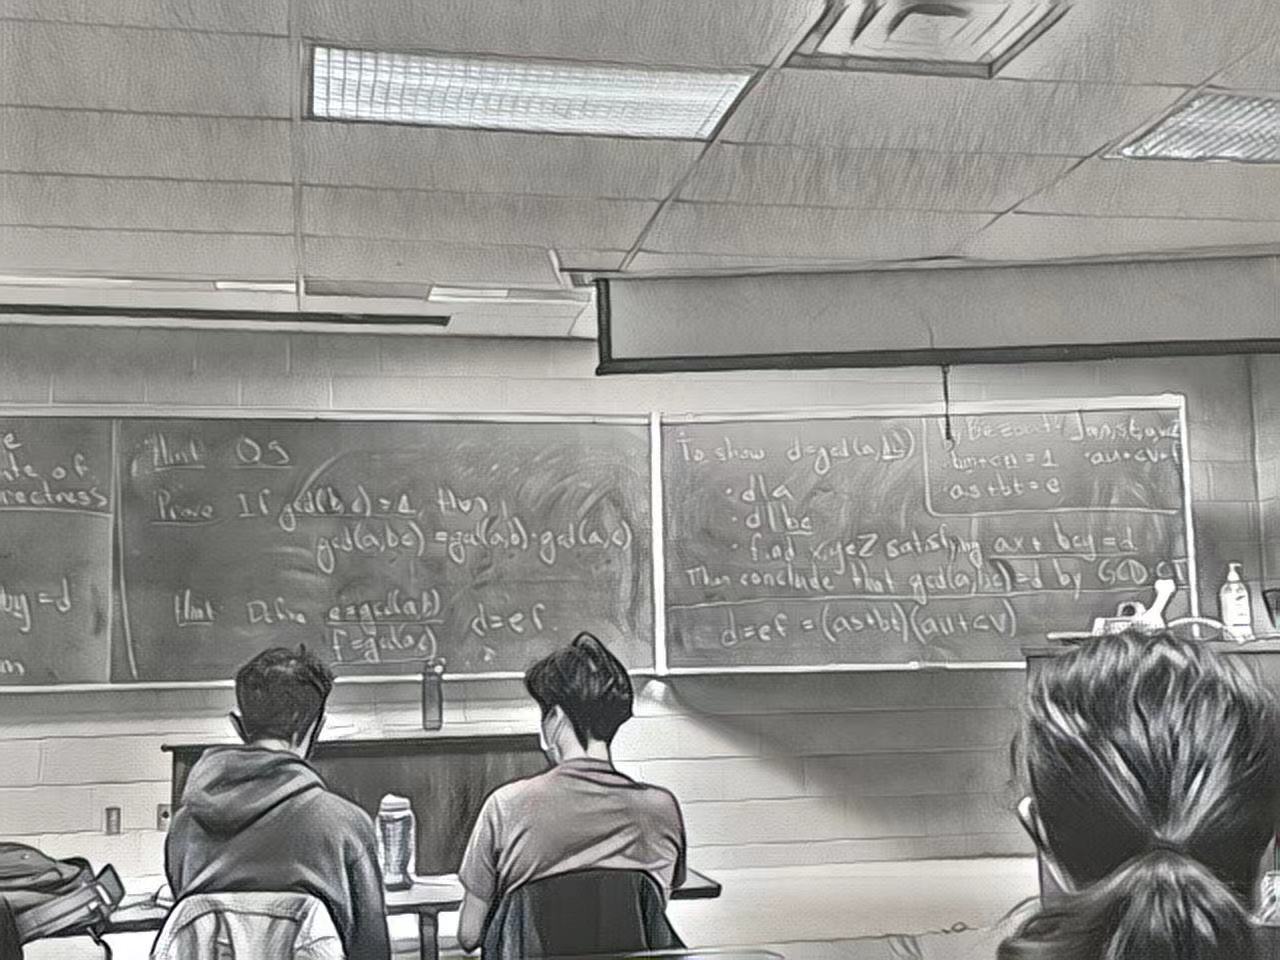 e
ate of
rectness
by = d
m
Hint Q5
Prove If gcd(b,c) = 1, then
gcd(a,bc) = gcd(a,b)·gcd(a,c)
Hint Define e = gcd(a,b) d = ef.
f = gcd(a,c)
To show d = gcd(a,bc)
· d|a
· d|bc
· find x,y∈Z satisfying ax + bcy = d
Then conclude that gcd(a,bc) = d by GCD CT
d = ef = (as+bt)(au+cv)
By Bezout
bm+cn = 1 · au+cv = f
· as+bt = e